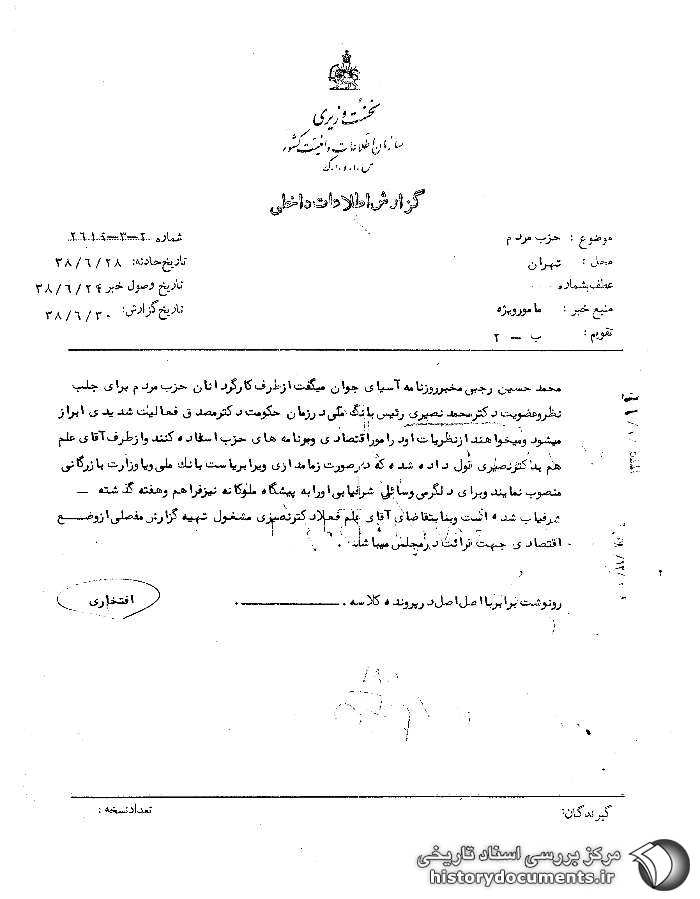 نخست وزیری
سازمان اطلاعات و امنیت کشور
س.ا.و.ا.ک
گزارش اطلاعات داخلی
موضوع : حزب مردم
شماره
محل : تهران
تاریخ حادثه: ۳۸/۶/۲۸
عطف بشماره
تاریخ وصول خبر ۳۸/۶/۲۹
منبع خبر : مامور ویژه
تاریخ گزارش: ۳۸/۶/۳۰
تقویم : ب - ۲
محمد حسین رجبی مخبر روزنامه آسیای جوان میگفت از طرف کارگردانان حزب مردم برای جلب
نظر و عضویت دکتر محمد نصیری رئیس بانگ ملی در زمان حکومت دکتر مصدق فعالیت شدیدی ابراز
میشود و میخواهند از نظریات او در امور اقتصادی وبرنامه های حزب استفاده کنند واز طرف آقای علم
هم بدکتر نصیری قول داده شده که در صورت زمامداری ویرا بریاست بانک ملی ویا وزارت بازرگانی
منصوب نمایند وبرای دلگرمی وسائل شرفیابی او را به پیشگاه ملوکانه نیز فراهم وهفته گذشته –
شرفیاب شده است وبنا بتقاضای آقای علم فعلا دکتر نصیری مشغول تهیه گزارش مفصلی از وضع
اقتصادی جهت قرائت در مجلس میباشد.
رونوشت برابر با اصل اصل در پرونده کلاسه .
افتخاری
گیرندگان:
تعداد نسخه :
مرکز بررسی اسناد تاریخی
historydocuments.ir